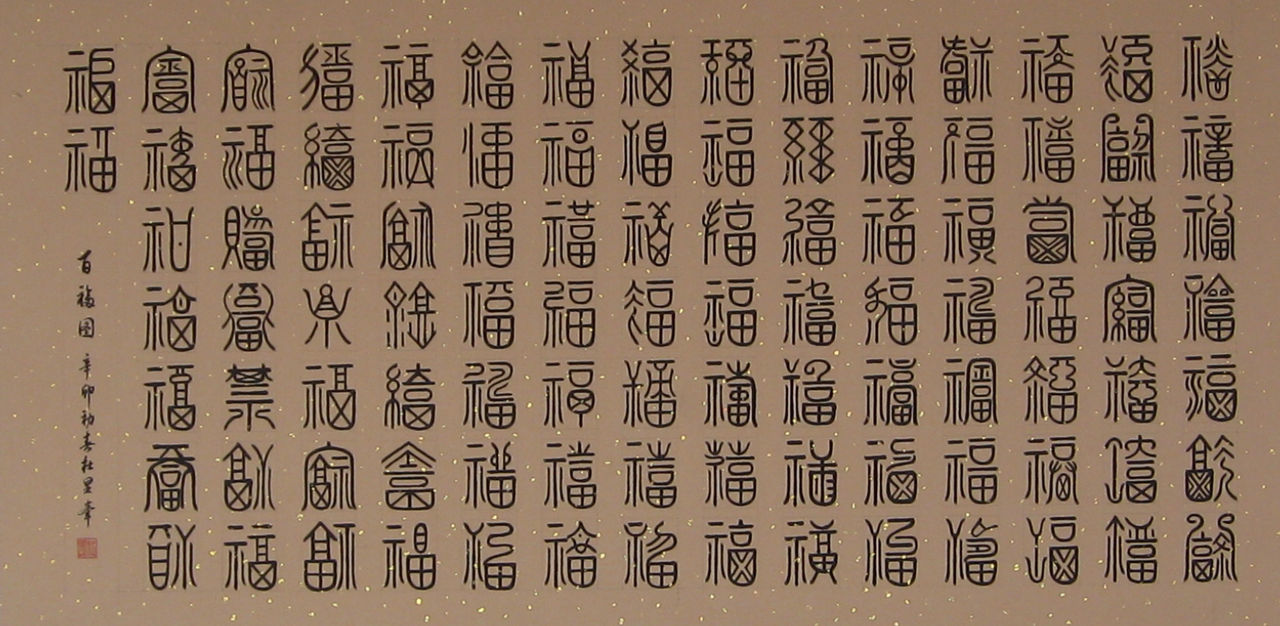 福福福福福福福
福福福福福福福
福福福福福福福
福福福福福福福
福福福福福福福
福福福福福福福
福福福福福福福
福福福福福福福
福福福福福福福
福福福福福福福
福福福福福福福
福福福福福福福
福福福福福福福
福福福福福福福
福福
百福图 辛卯初春杜星